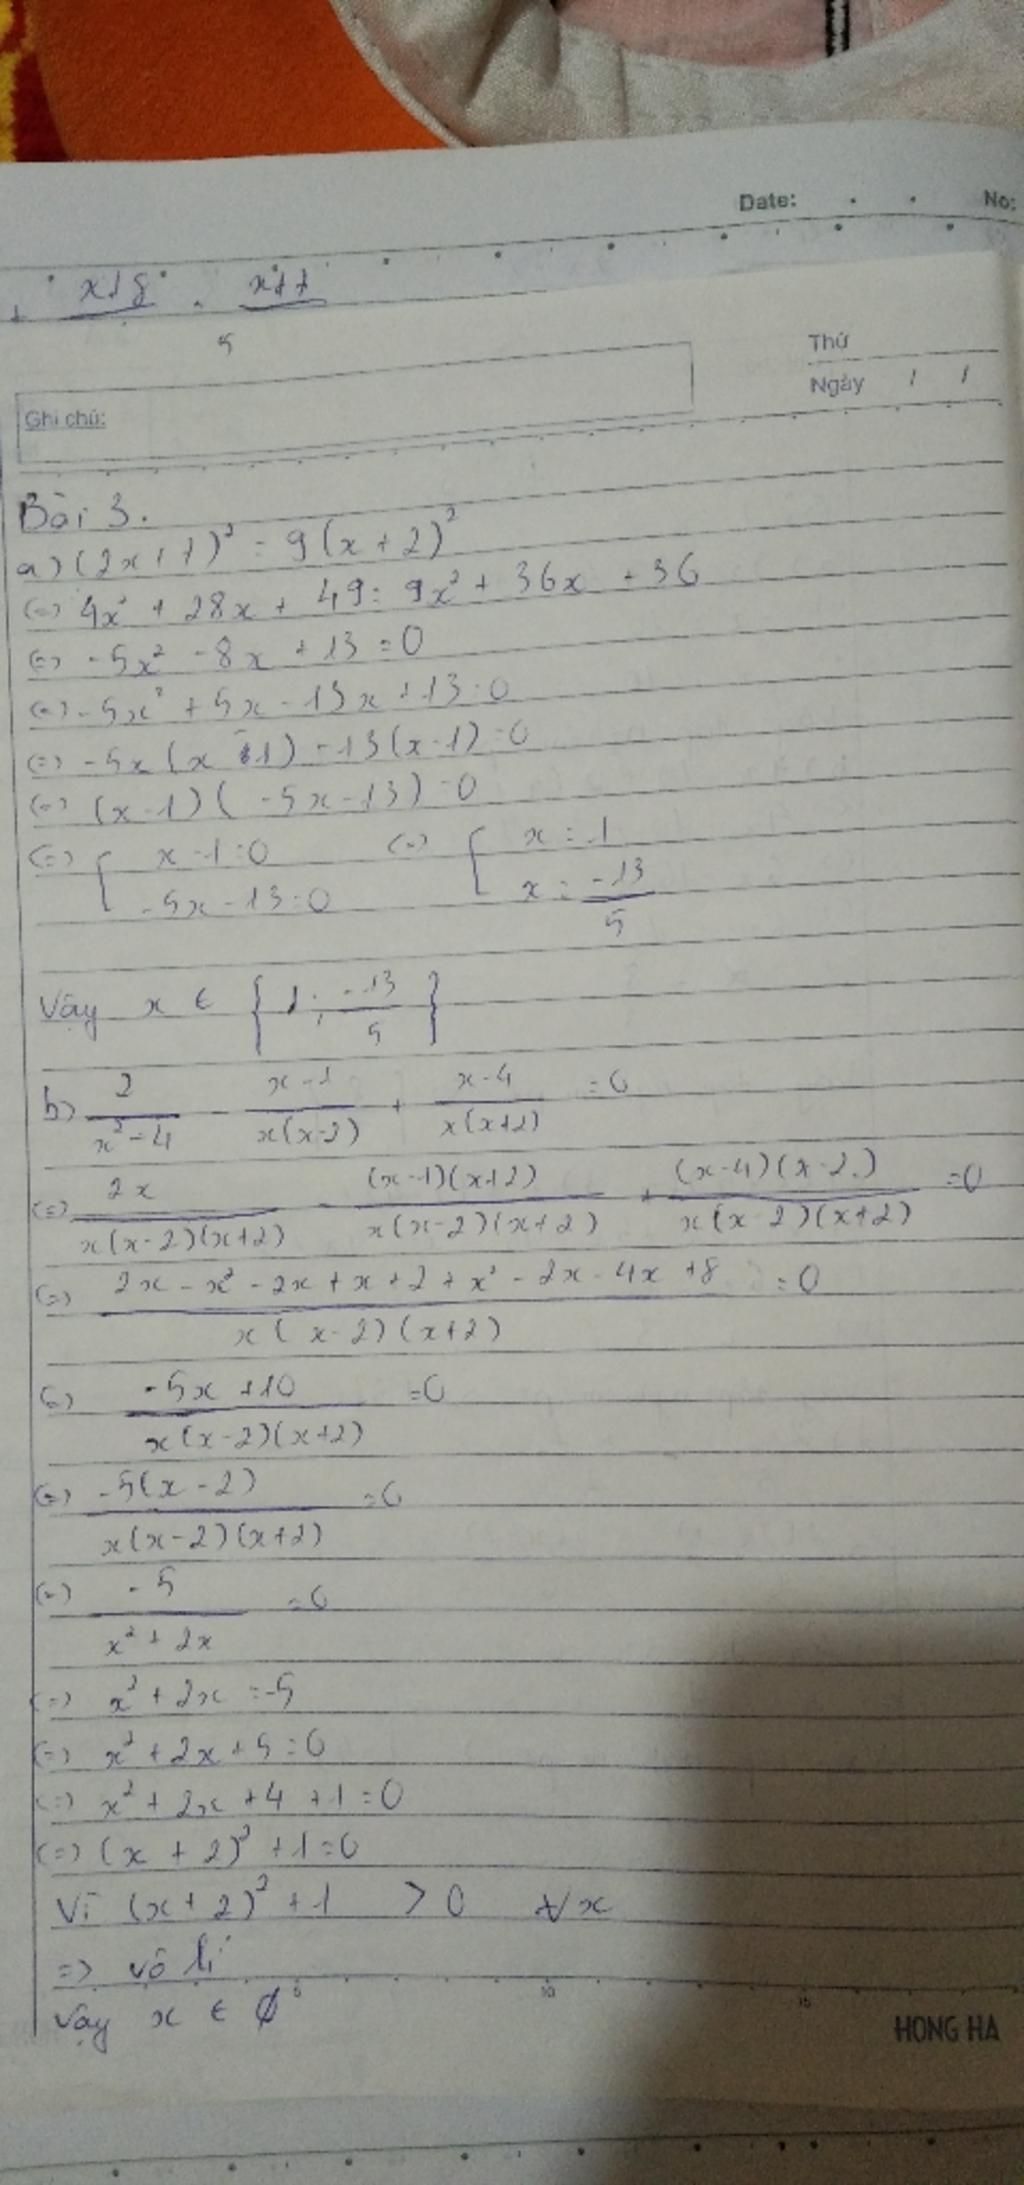 Date: No:
+ x+8 / . x+7 / 5
Thứ
Ngày / /
Ghi chú:
Bài 3.
a) (2x+7)² = 9(x+2)²
(=) 4x² + 28x + 49 = 9x² + 36x + 36
(=) -5x² - 8x + 13 = 0
(=) -5x² + 5x - 13x + 13 = 0
(=) -5x(x - 1) - 13(x-1) = 0
(=) (x-1)(-5x-13) = 0
(=) [ x-1=0 (=) [ x = 1
-5x-13=0 x = -13/5
Vậy x ∈ { 1 ; -13/5 }
b) 2/(x²-4) - (x-1)/(x(x-2)) + (x-4)/(x(x+2)) = 0
(=) 2x/(x(x-2)(x+2)) - (x-1)(x+2)/(x(x-2)(x+2)) + (x-4)(x-2)/(x(x-2)(x+2)) = 0
(=) (2x - x² - 2x + x + 2 + x² - 2x - 4x + 8)/(x(x-2)(x+2)) = 0
(=) (-5x + 10)/(x(x-2)(x+2)) = 0
(=) -5(x-2)/(x(x-2)(x+2)) = 0
(=) -5/(x² + 2x) = 0
(=) x² + 2x = -5
(=) x² + 2x + 5 = 0
(=) x² + 2x + 4 + 1 = 0
(=) (x + 2)² + 1 = 0
Vì (x+2)² + 1 > 0 ∀x
=> vô lí
5 10 15
Vậy x ∈ ∅
HONG HA